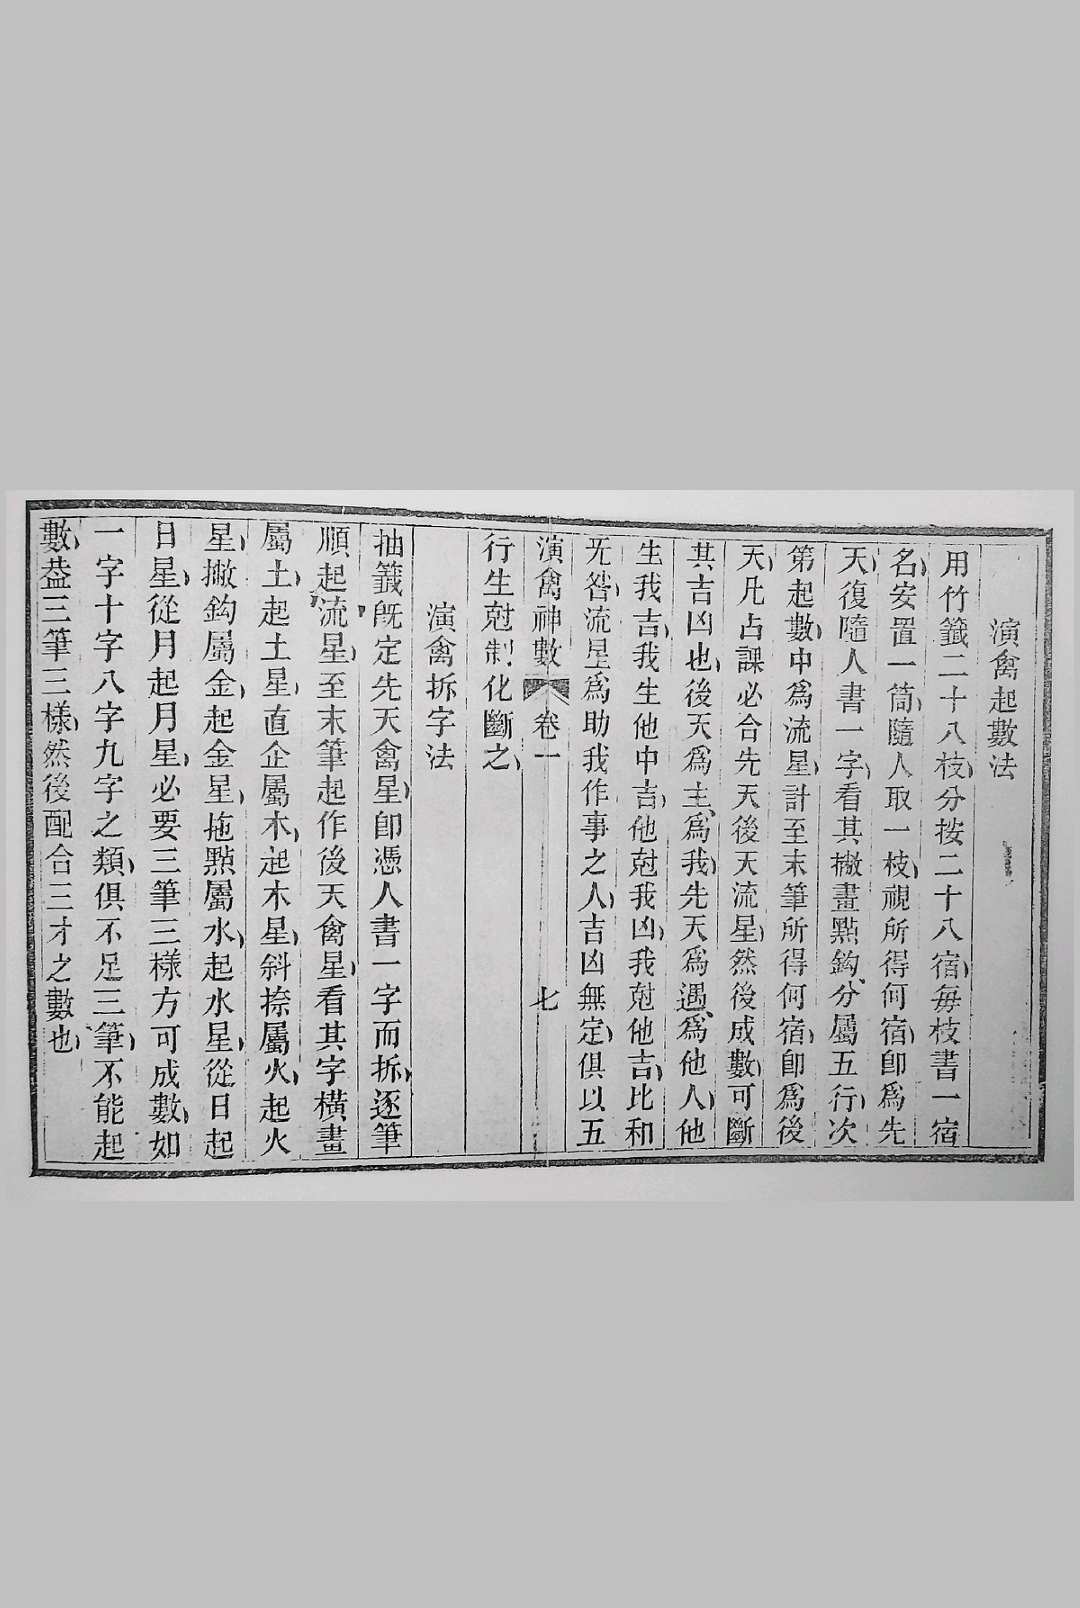 演禽起數法
用竹籤二十八枝分按二十八宿每枝書一宿
名安置一筒隨人取一枝視所得何宿卽爲先
天復隨人書一字看其撇畫點鈎分屬五行次
第起數中爲流星計至末筆所得何宿卽爲後
天凡占課必合先天後天流星然後成數可斷
其吉凶也後天爲主爲我先天爲遇爲他人他
生我吉我生他中吉他尅我凶我尅他吉比和
旡咎流星爲助我作事之人吉凶無定俱以五
演禽神數 卷一 七
行生尅制化斷之
演禽拆字法
抽籤旣定先天禽星卽憑人書一字而拆逐筆
順起流星至末筆起作後天禽星看其字橫畫
屬土起土星直企屬木起木星斜捺屬火起火
星撇鈎屬金起金星拖點屬水起水星從日起
日星從月起月星必要三筆三樣方可成數如
一字十字八字九字之類俱不足三筆不能起
數葢三筆三樣然後配合三才之數也